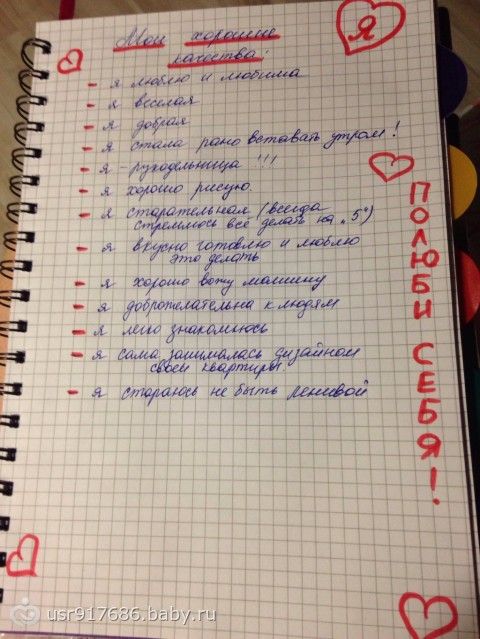 Мои хорошие
качества:
Я
- я люблю и любима
- я веселая
- я добрая
- я стала рано вставать утром!
- я - рукодельница !!!
- я хорошо рисую.
- я старательная (всегда
стремлюсь всё делать на „5“)
- я вкусно готовлю и люблю
это делать
- я хорошо вожу машину
- я доброжелательна к людям
- я легко знакомлюсь
- я сама занималась дизайном
своей квартиры
- я стараюсь не быть ленивой
ПОЛЮБИ СЕБЯ!
usr917686.baby.ru